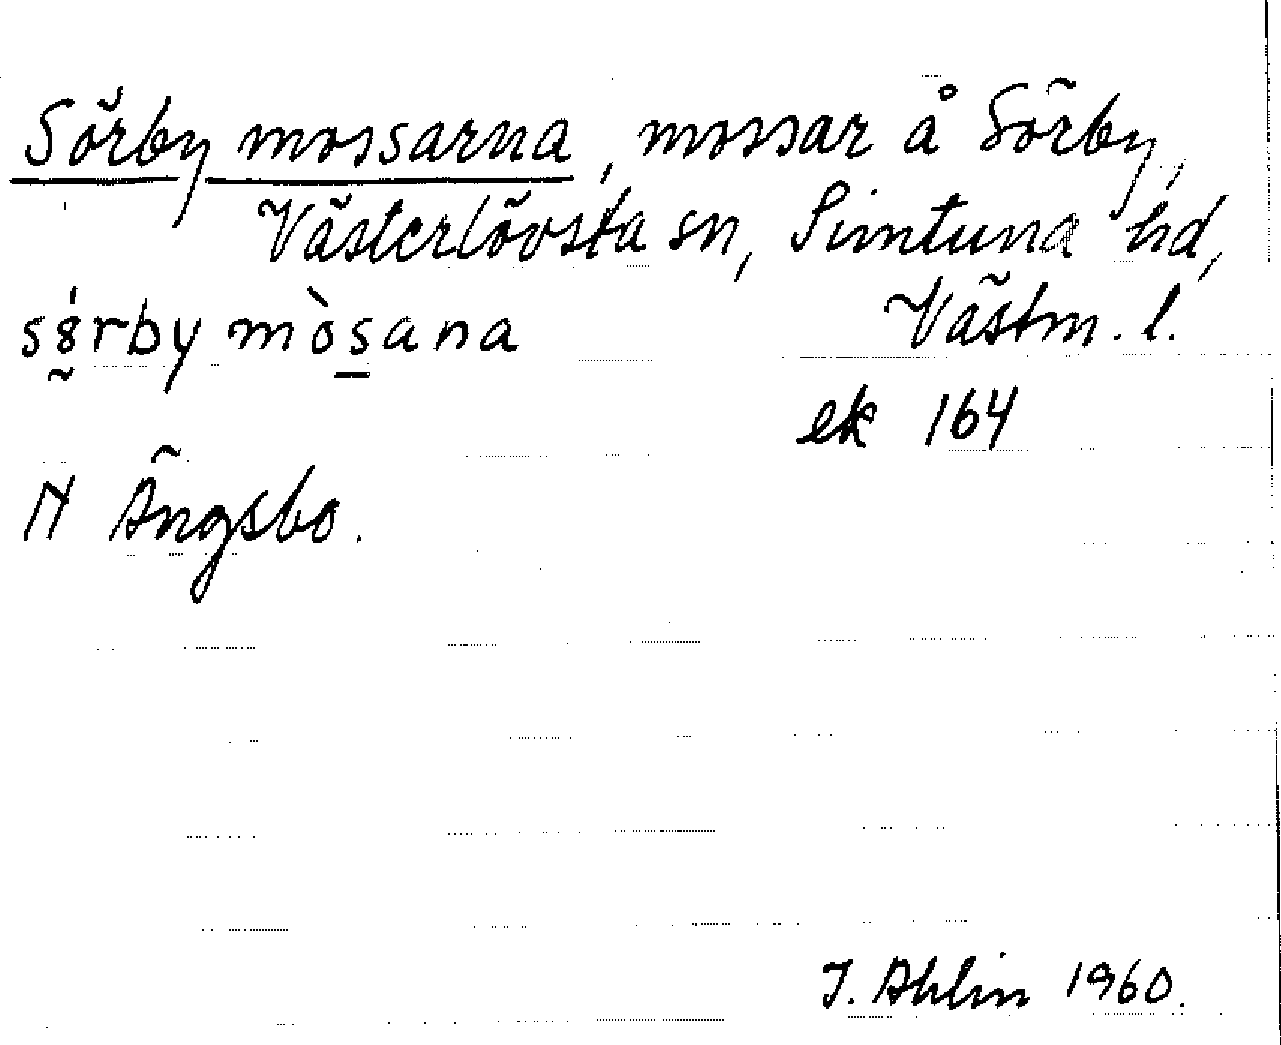 Sörby mossarna, mossar å Sörby,
Västerlövsta sn, Simtuna hd,
Västm. l.
sörby mòsana
ek 164
N Ängsbo.
J. Ahlin 1960.